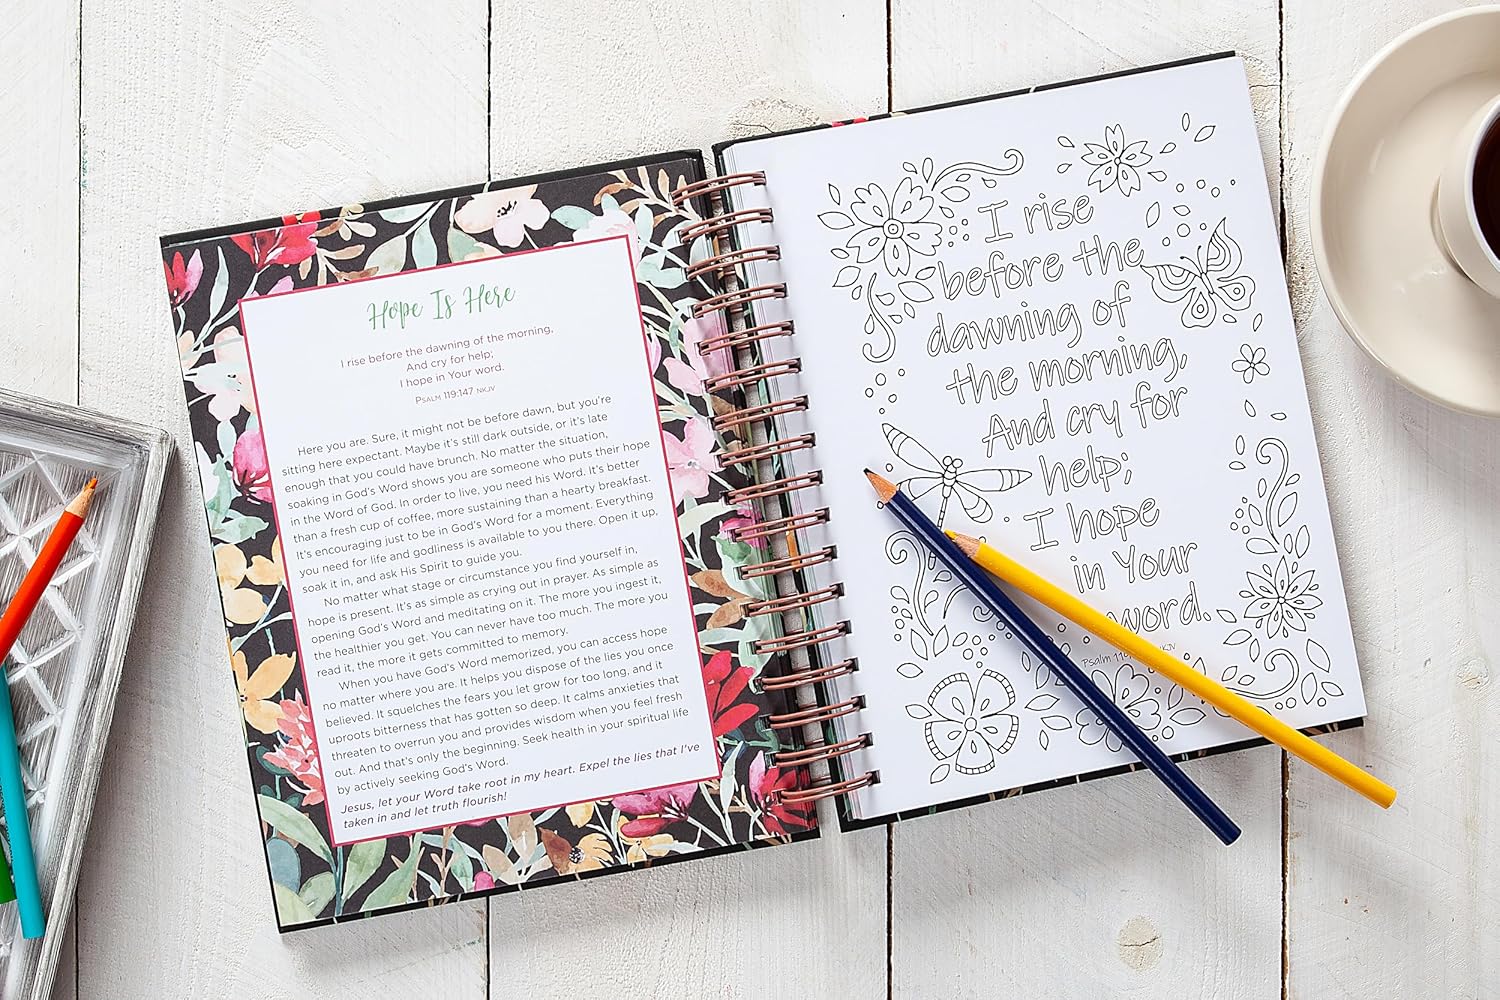 Hope Is Here
I rise before the dawning of the morning,
And cry for help;
I hope in Your word.
Psalm 119:147 NKJV
Here you are. Sure, it might not be before dawn, but you're
sitting here expectant. Maybe it's still dark outside, or it's late
enough that you could have brunch. No matter the situation,
soaking in God's Word shows you are someone who puts their hope
in the Word of God. In order to live, you need his Word. It's better
than a fresh cup of coffee, more sustaining than a hearty breakfast.
It's encouraging just to be in God's Word for a moment. Everything
you need for life and godliness is available to you there. Open it up,
soak it in, and ask His Spirit to guide you.
No matter what stage or circumstance you find yourself in,
hope is present. It's as simple as crying out in prayer. As simple as
opening God's Word and meditating on it. The more you ingest it,
the healthier you get. You can never have too much. The more you
read it, the more it gets committed to memory.
When you have God's Word memorized, you can access hope
no matter where you are. It helps you dispose of the lies you once
believed. It squelches the fears you let grow for too long, and it
uproots bitterness that has gotten so deep. It calms anxieties that
threaten to overrun you and provides wisdom when you feel fresh
out. And that's only the beginning. Seek health in your spiritual life
by actively seeking God's Word.
Jesus, let your Word take root in my heart. Expel the lies that I've
taken in and let truth flourish!
I rise
before the
dawning of
the morning,
And cry for
help;
I hope
in Your
word.
Psalm NKJV